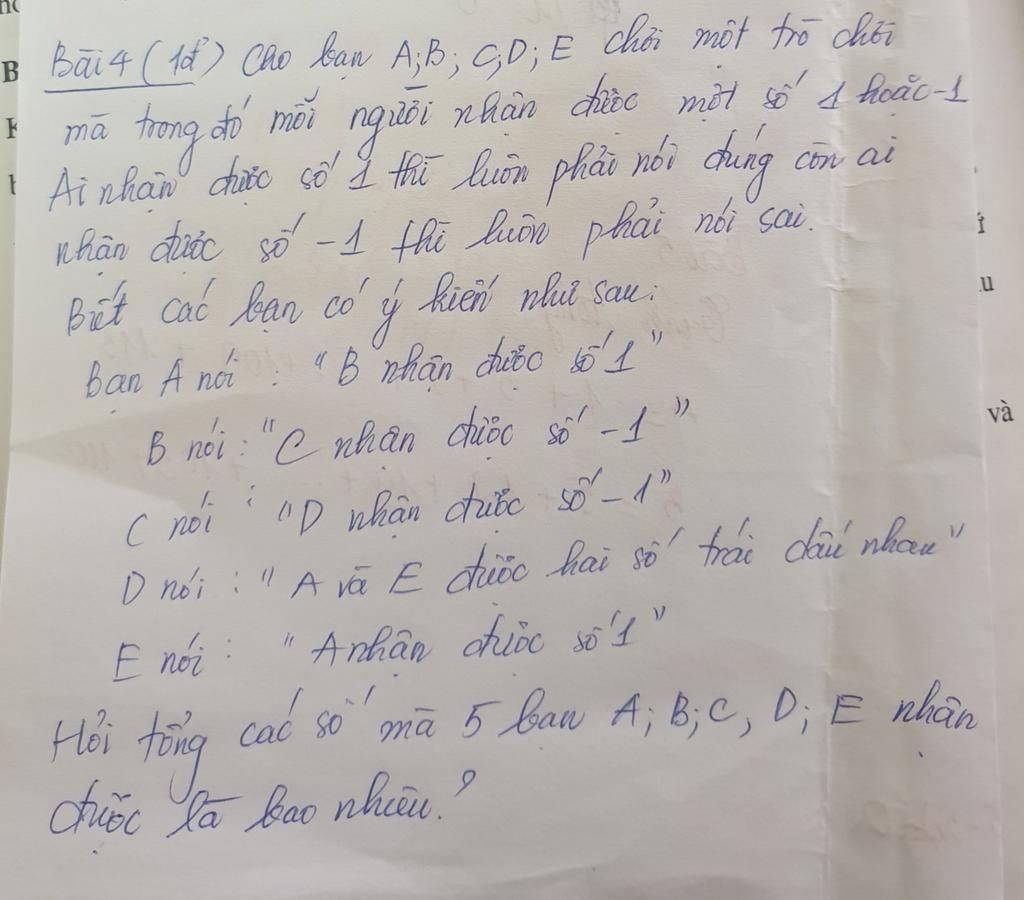 Bài 4 (1đ) Cho bạn A; B; C; D; E chơi một trò chơi
mà trong đó mỗi người nhận được một số 1 hoặc -1
Ai nhận được số 1 thì luôn phải nói đúng còn ai
nhận được số -1 thì luôn phải nói sai.
Biết các bạn có ý kiến như sau:
Bạn A nói : "B nhận được số 1"
B nói : "C nhận được số -1"
C nói : "D nhận được số -1"
D nói : "A và E được hai số trái dấu nhau"
E nói : "A nhận được số 1"
Hỏi tổng các số mà 5 bạn A; B; C, D; E nhận
được là bao nhiêu?
và